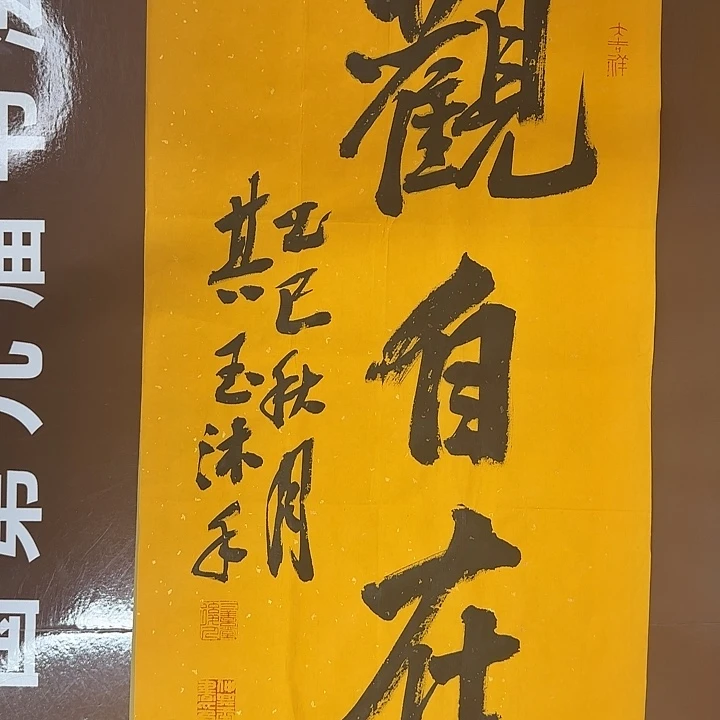 觀自在
大吉祥
乙巳秋月
其玉沐手
国第九届书法